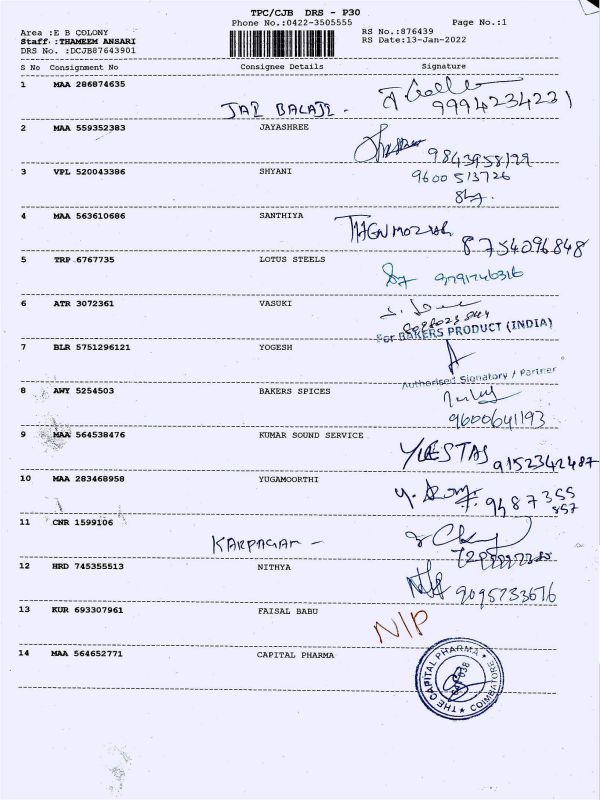 TPC/CJB DRS - P30
Phone No.:0422-3505555 Page No.:1
Area :E B COLONY RS No.:876439
Staff :THAMEEM ANSARI RS Date:13-Jan-2022
DRS No. :DCJB87643901
S No Consignment No Consignee Details Signature
1 MAA 286874635
JAI BALAJI - 9994234231
2 MAA 559352383 JAYASHREE
3 VPL 520043386 SHYANI 9600513726
4 MAA 563610686 SANTHIYA
8754096848
5 TRP 6767735 LOTUS STEELS
9791746316
6 ATR 3072361 VASUKI
For BAKERS PRODUCT (INDIA)
7 BLR 5751296121 YOGESH
Authorised Signatory / Partner
8 AWY 5254503 BAKERS SPICES
9600641193
9 MAA 564538476 KUMAR SOUND SERVICE
9152342487
10 MAA 283468958 YUGAMOORTHI
9487355
857
11 CNR 1599106
KARPAGAM -
12 HRD 745355513 NITHYA
9095733616
13 KUR 693307961 FAISAL BABU
N/P
14 MAA 564652771 CAPITAL PHARMA
THE CAPITAL PHARMA * COIMBATORE *